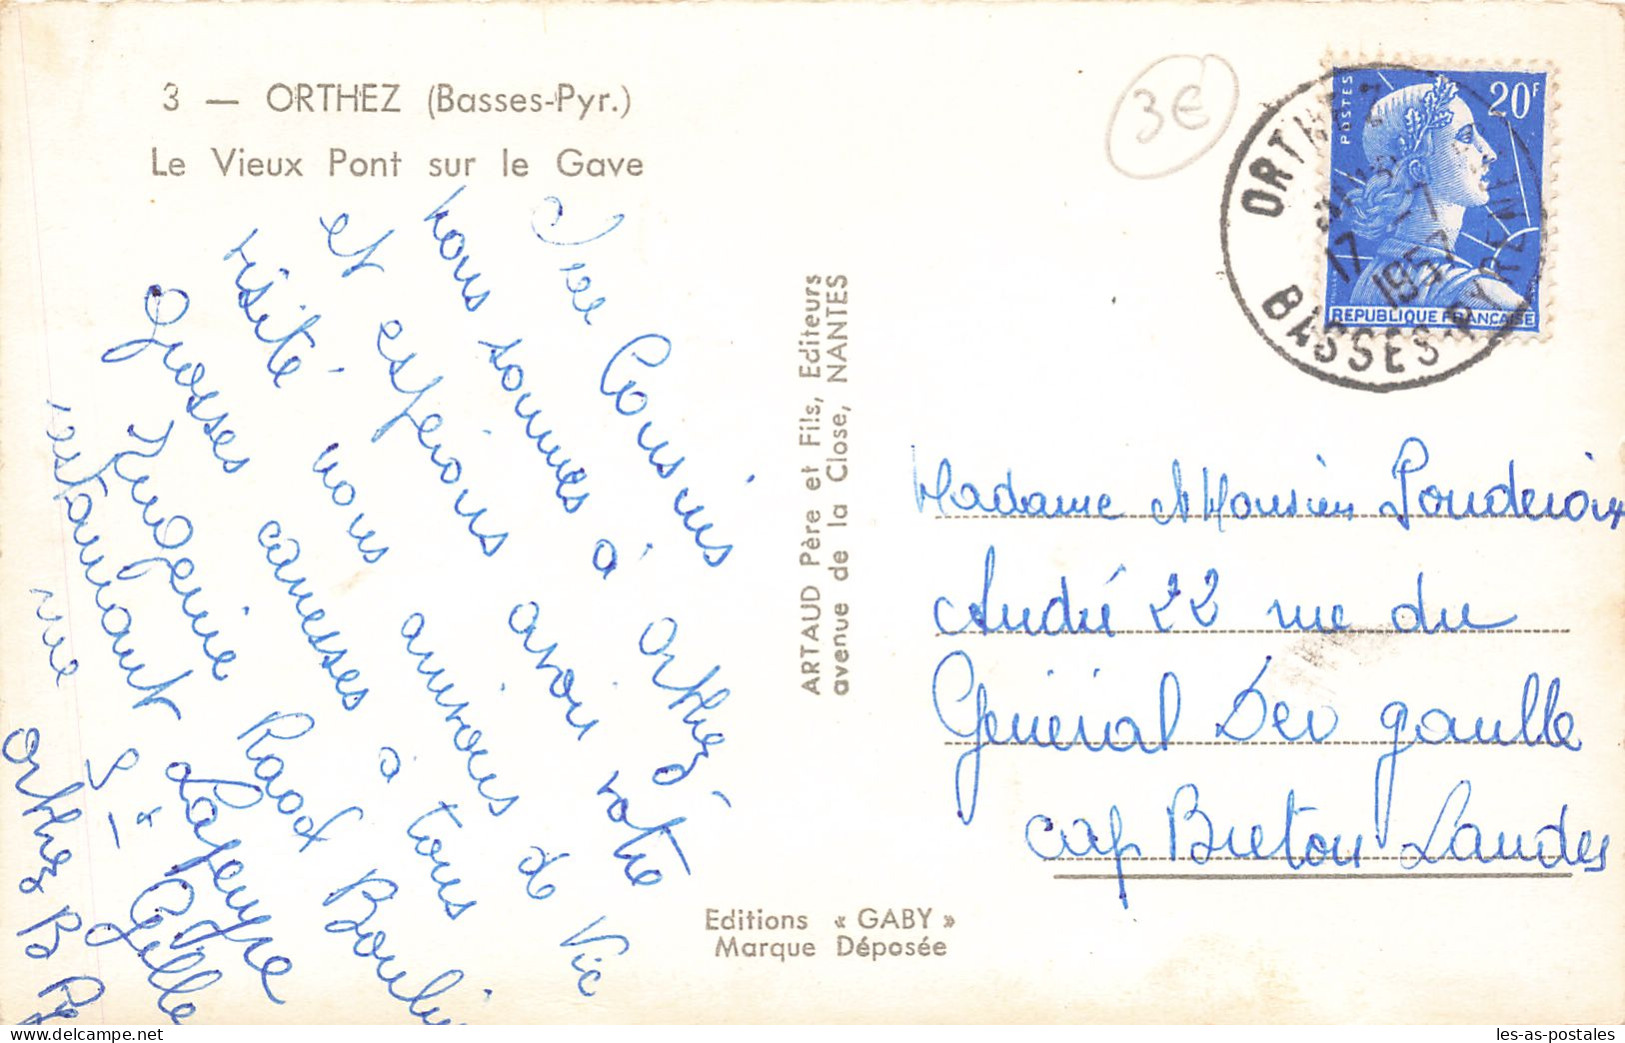 3 — ORTHEZ (Basses-Pyr.)
Le Vieux Pont sur le Gave
3€
POSTES
20F
REPUBLIQUE FRANÇAISE
ORTHEZ
17
-7
1957
BASSES-PYRENEES
Cousins
nous sommes à Orthez
et espérons avoir votre
visité nous arrivons de Vic
Grosses caresses à tous
Raoul
restaurant Lafeuyre
rue St Gille
Orthez B P
ARTAUD Père et Fils, Editeurs
avenue de la Close, NANTES
Editions « GABY »
Marque Déposée
Madame Monsieur
André 22 rue du
Général De gaulle
Cap Breton Landes
les-as-postales